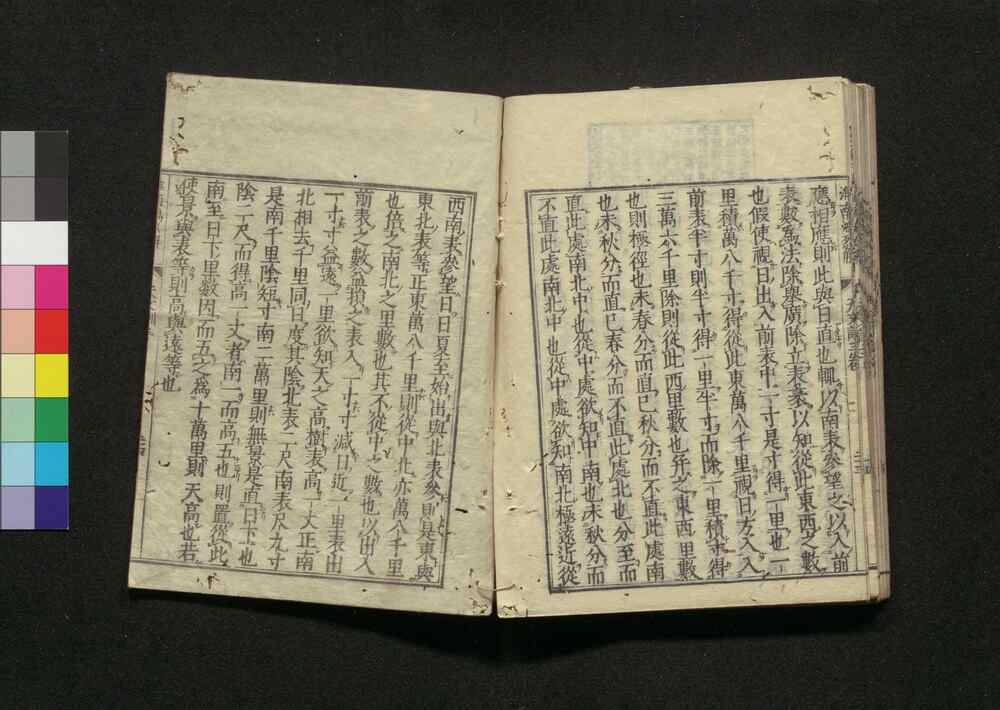 淮南鴻烈解
應相應則此與日直也輒以南表參望之以入前
表數爲法除擧廣除立表袤以知從此東西之數
也假使視日出入前表中一寸是寸得一里也一
里積萬八千寸得從此東萬八千里視日方入入
前表半寸則半寸得一里半寸而除一里積寸得
三萬六千里除則從此西里數也并之東西里數
也則極徑也未春分而直已秋分而不直此處南
也未秋分而直已春分而不直此處北也分至而
直此處南北中也從中處欲知中南也未秋分而
不直此處南北中也從中處欲知南北極遠近從
西南表參望日日夏至始出與北表參則是東與
東北表等正東萬八千里則從中北亦萬八千里
也倍之南北之里數也其不從中之數也以出入
前表之數益損之表入一寸寸減日近一里表出
一寸寸益遠一里欲知天之高樹表高一丈正南
北相去千里同日度其陰北表二尺南表尺九寸
是南千里陰短寸南二萬里則無景是直日下也
陰二尺而得高一丈者南一而高五也則置從此
南至日下里數因而五之爲十萬里則天高也若
使景與表等則高與遠等也